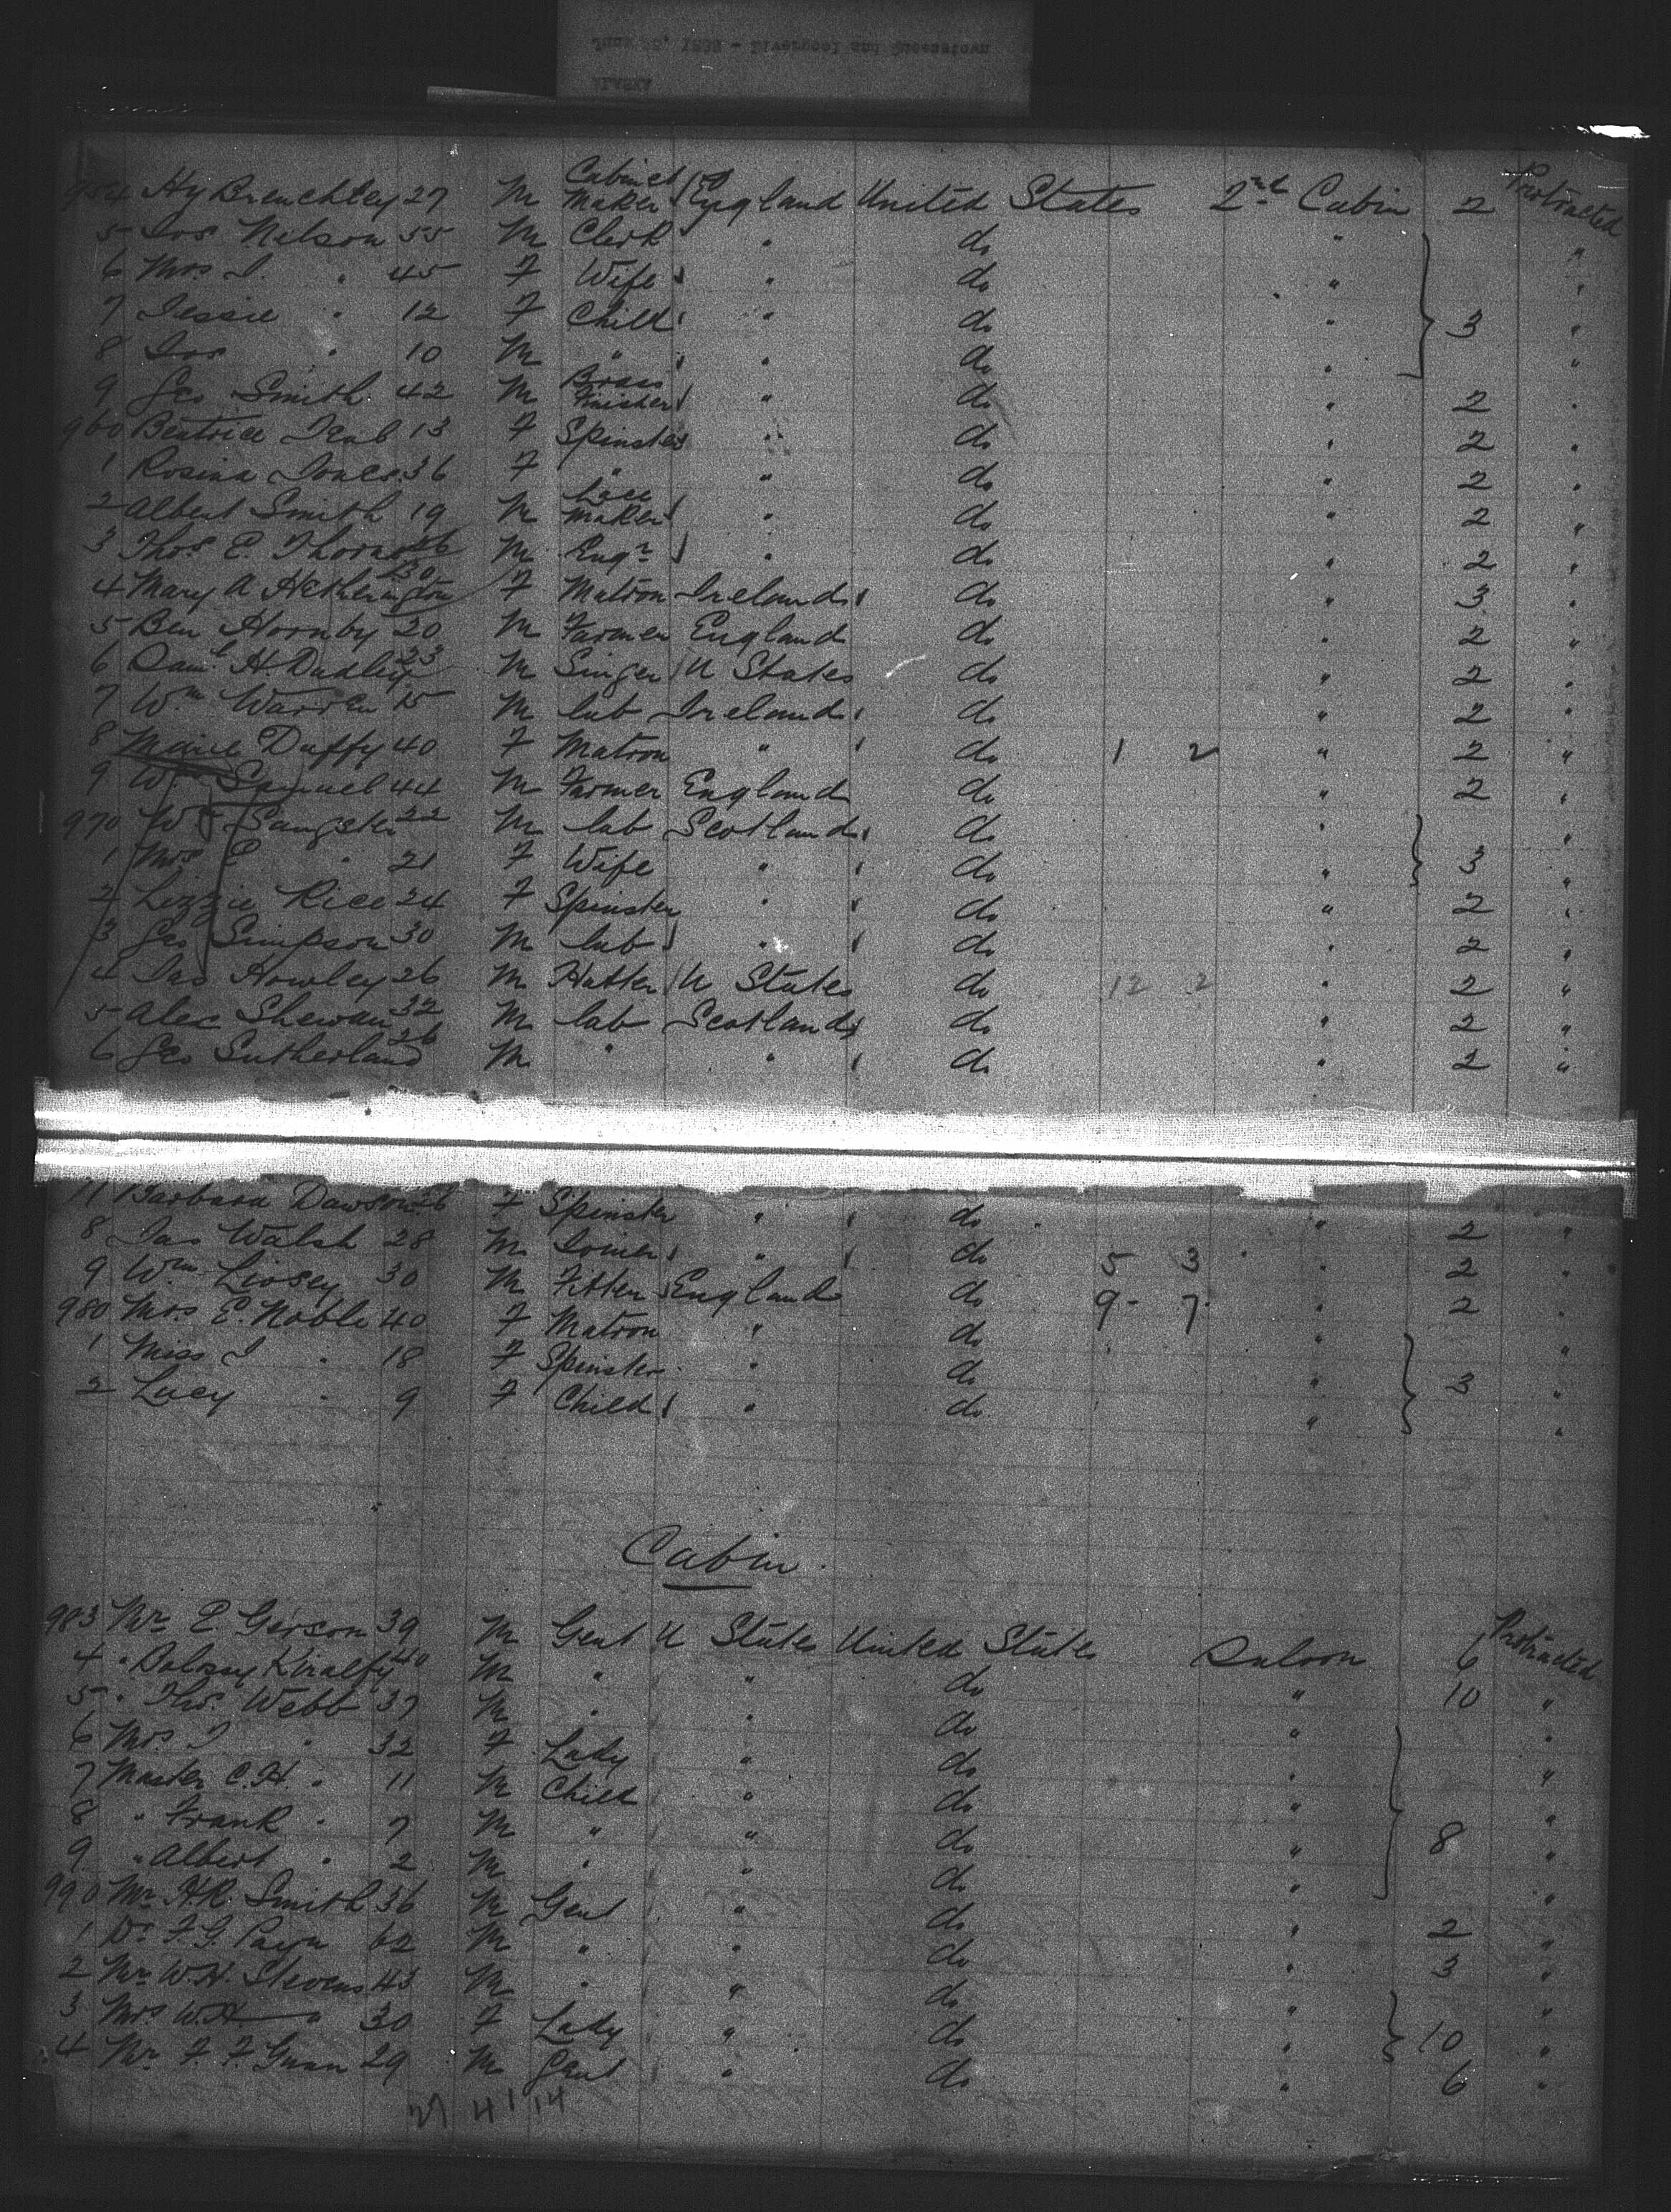 954 Hy Brenchley 27 M Cabinet Maker England United States 2nd Cabin 2 Protracted
5 Jos Nelson 55 M Clerk " do "
6 Mrs J. " 45 F Wife " do " "
7 Jessie " 12 F Child " do " 3 "
8 Jos " 10 M " " do " "
9 Geo Smith 42 M Brass Finisher " do " 2 "
960 Beatrice 13 F Spinster " do " 2 "
1 Rosina Jones 36 F " " do " 2 "
2 Albert Smith 19 M Lace Maker " do " 2 "
3 Thos E. Thorne 26 M Engr " do " 2 "
4 Mary A Hetherington 30 F Matron Ireland do " 3 "
5 Ben Hornby 20 M Farmer England do " 2 "
6 Saml H. Dudley 23 M Singer U States do " 2 "
7 Wm Warren 15 M lab Ireland do " 2 "
8 Marie Duffy 40 F Matron " do 1 2 " 2 "
9 Wm Samuel 44 M Farmer England do " 2 "
970 Wm Sangster 22 M lab Scotland do " "
1 Mrs E " 21 F Wife " do " 3 "
2 Lizzie Rice 24 F Spinster " do " 2 "
3 Geo Simpson 30 M lab " do " 2 "
4 Jas Howley 26 M Hatter U States do 12 2 " 2 "
5 Alex Shewan 32 M lab Scotland do " 2 "
6 Geo Sutherland 26 M " " do " 2 "
7 Barbara Dawson 26 F Spinster " do " 2 "
8 Jas Walsh 28 M Joiner " do 5 3 " 2 "
9 Wm Livsey 30 M Fitter England do 9 - 7 " 2 "
980 Mrs E. Noble 40 F Matron " do " "
1 Miss J " 18 F Spinster " do " 3 "
2 Lucy " 9 F Child " do " "
Cabin
983 Mr E Gerson 39 M Gent U States United States Saloon 6 Protracted
4 " Bolossy Kiralfy 40 M " " do " 10 "
5 " Thos. Webb 37 M " " do " "
6 Mrs. J " 32 F Lady " do " "
7 Master C.H. " 11 M Child " do " "
8 " Frank " 7 M " " do " 8 "
9 " Albert " 2 M " " do " "
990 Mr H.R. Smith 36 M Gent " do " 2 "
1 Dr F.G. Payn 62 M " " do " 3 "
2 Mr W.H. Stevens 43 M " " do " "
3 Mrs W.H. " 30 F Lady " do " 10 "
4 Mr F. F Gunn 29 M Gent " do " 6 "
27 41 14